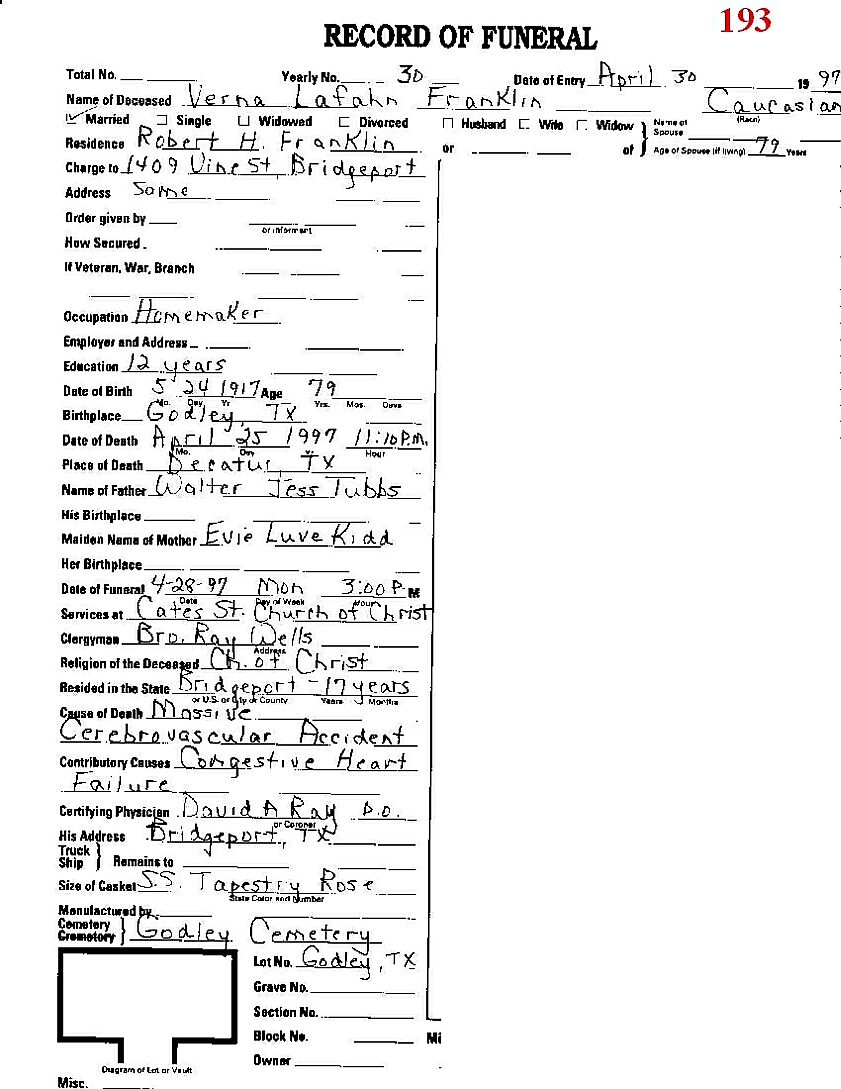 193
RECORD OF FUNERAL
Total No. Yearly No. 30 Date of Entry April 30 1997
Name of Deceased Verna Lafahn Franklin Caucasian
(Race)
Married Single Widowed Divorced Husband Wife Widow Name of Spouse
Residence Robert H. Franklin or of Age of Spouse (if living) 79 Years
Charge to 1409 Vine St, Bridgeport
Address Same
Order given by
or informant
How Secured
If Veteran, War, Branch
Occupation Homemaker
Employer and Address
Education 12 years
Date of Birth 5 24 1917 Age 79
Mo. Day Yr Yrs. Mos. Days
Birthplace Godley, TX
Date of Death April 25 1997 11:10 P.M.
Mo. Day Yr Hour
Place of Death Decatur, TX
Name of Father Walter Jess Tubbs
His Birthplace
Maiden Name of Mother Evie Luve Kidd
Her Birthplace
Date of Funeral 4-28-97 Mon 3:00 P.M
Date Day of Week Hour
Services at Cates St. Church of Christ
Clergyman Bro. Ray Wells
Address
Religion of the Deceased Ch. of Christ
Resided in the State Bridgeport - 17 years
or U.S. or City or County Years Months
Cause of Death Massive
Cerebrovascular Accident
Contributory Causes Congestive Heart
Failure
Certifying Physician David A Ray D.O.
or Coroner
His Address Bridgeport, TX
Truck
Ship Remains to
Size of Casket S.S. Tapestry Rose
State Color and Number
Manufactured by
Cemetery
Crematory Godley Cemetery
Lot No. Godley, TX
Grave No.
Section No.
Block No. Mi
Owner
Diagram of Lot or Vault
Misc.